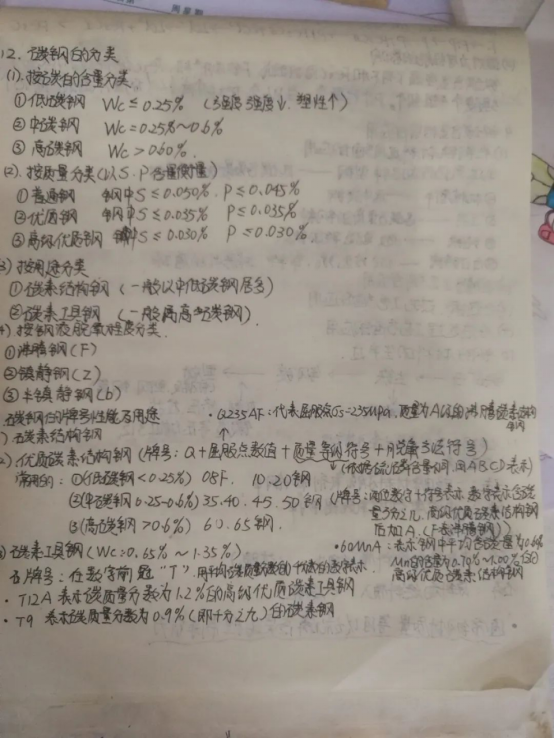 12. 碳钢的分类
(1). 按碳的含量分类
①低碳钢 Wc ≤ 0.25% (硬度强度↓. 塑性↑)
②中碳钢 Wc = 0.25%~0.6%
③高碳钢 Wc > 0.60%.
(2). 按质量分类(以S.P含量衡量)
①普通钢 钢中S ≤ 0.050%. P ≤ 0.045%
②优质钢 钢中S ≤ 0.035% P ≤ 0.035%
③高级优质钢 钢中S ≤ 0.030% P ≤ 0.030%
3) 按用途分类
①碳素结构钢 (一般以中低碳钢居多)
②碳素工具钢 (一般属高碳钢)
4) 按钢液脱氧程度分类.
①沸腾钢 (F)
②镇静钢 (Z)
③半镇静钢 (b)
碳钢的牌号性能与用途
·Q235AF:代表屈服点σs=235MPa, 质量为A级的沸腾碳素结构钢
) 碳素结构钢
(牌号: Q+屈服点数值+质量等级符号+脱氧方法符号)
(依据硫磷含量不同,用ABCD表示)
2) 优质碳素结构钢
常用的: ①(低碳钢<0.25%) 08F. 10.20钢
②(中碳钢0.25-0.6%) 35.40.45.50钢
③(高碳钢>0.6%) 60.65钢.
(牌号:两位数字+符号表示. 数字表示含碳量万分之几. 高级优质碳素结构钢后加A. (F表沸腾钢))
·60MnA: 表示钢中平均含碳量为0.6% Mn的含量为0.70%~1.00%的高级优质碳素结构钢
) 碳素工具钢 (Wc=0.65%~1.35%)
牌号: 在数字前冠 "T".
·T12A 表示碳质量分数为1.2%的高级优质碳素工具钢
·T9 表示碳质量分数为0.9%(即千分之九)的碳素钢